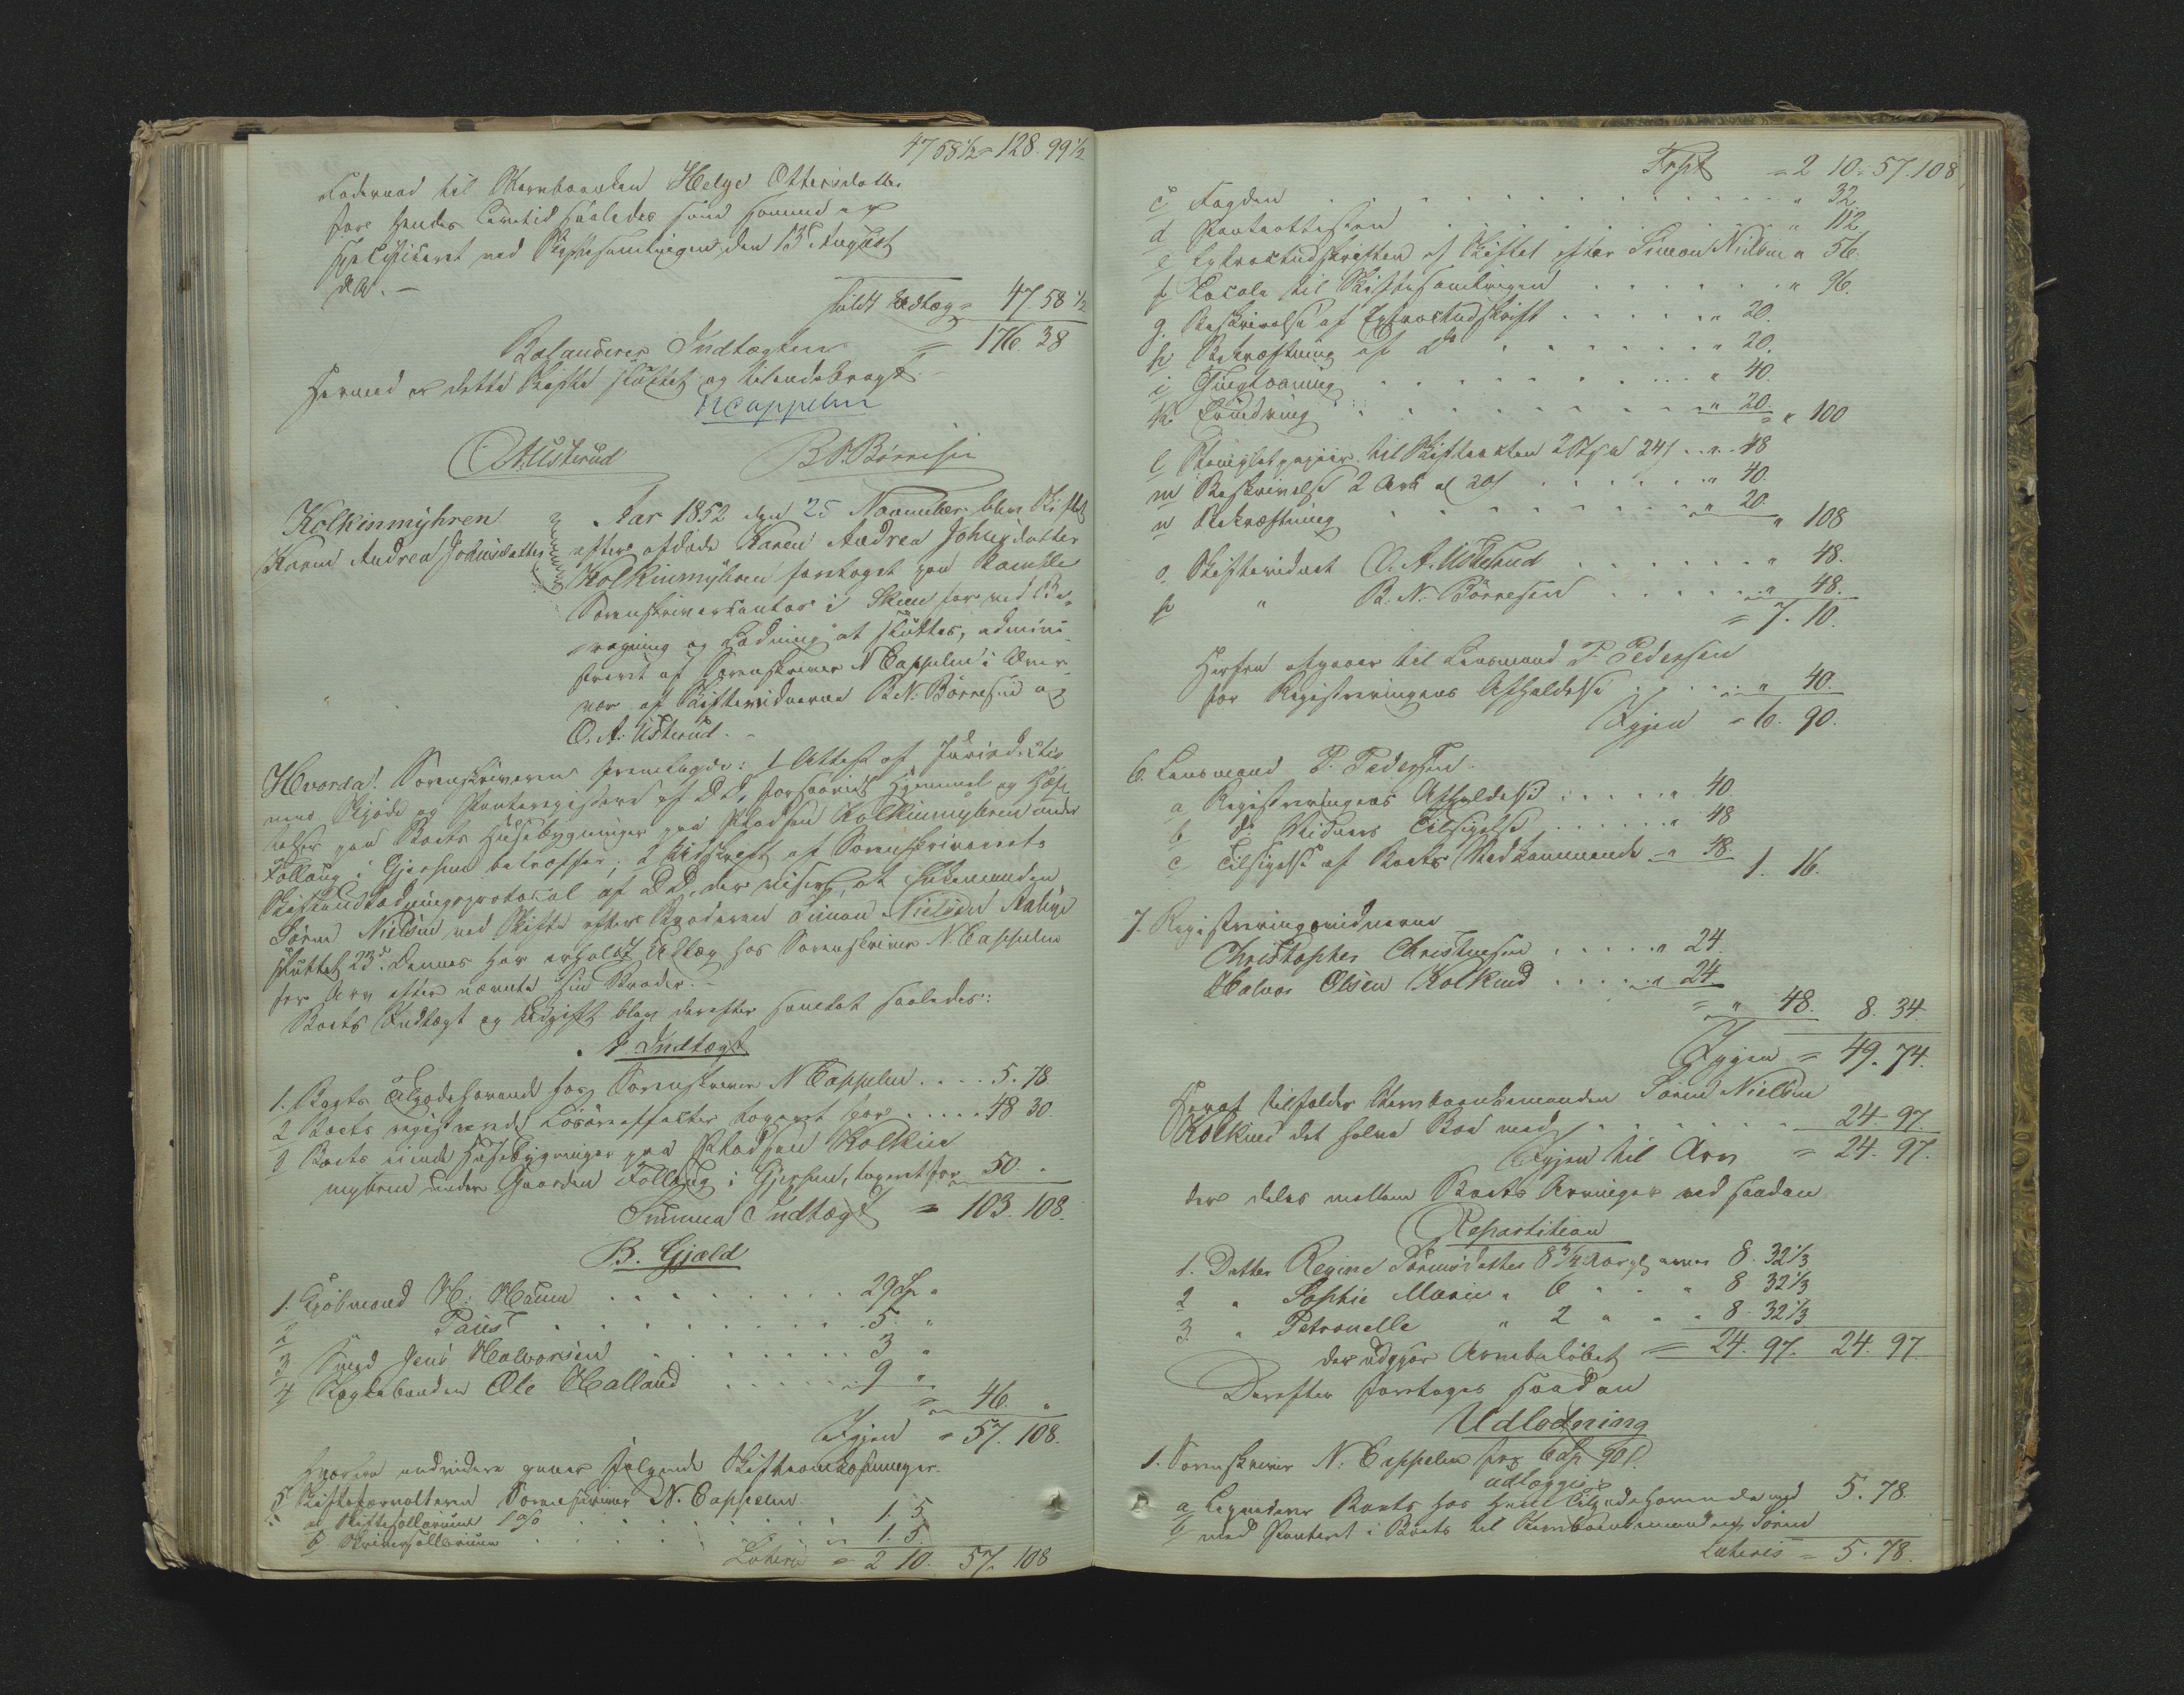 47 58½ = 128. 99½
Føderaad til Sterbboenken Helge Ottersdatter
for hendes Levetid saaledes som samme er
specificeret ved Skiftesamlingen den 13de August
d.A. —
fuldt Udlæg = 47. 58½
Balancerer Indtægten = 176. 38
Hermed er dette Skifte sluttet og tilendebragt. —
NCappelen
O.A. Usterud B.N. Børresen
Kolkinmyhren
Karen Andrea Johnsdatter
Aar 1852 den 25 November blev Skiftet
efter afdøde Karen Andrea Johnsdatter
Kolkinmyhren foretaget paa Bamble
Sorenskrivercontor i Skien for ved Be-
regning og Lodning at sluttes, admini-
streret af Sorenskriver N Cappelen i Over-
vær af Skiftevidnerne B.N. Børresen og
O.A. Usterud. —
Hvorda! Sorenskriveren fremlagde: 1 Attest af Jurisdictio-
nens Skjøde og Panteregistere af D.D. forsaavidt Hjemmel og Hæf-
telser paa Boets Huusebygninger paa Pladsen Kolkinmyhren under
Follaug i Gjerpen betræffer; 2 Udskrift af Sorenskriveriets
Skifteudlodningsprotocol af D.D. der viser, at Enkemanden
Søren Nielsen ved Skifte efter Broderen Simon Nielsen
sluttet 23de Dennes har erholdt Udlæg hos Sorenskriver N. Cappelen
for Arv efter nævnte sin Broder. —
Boets Indtægt og Udgift blev derefter samlet saaledes:
A. Indtægt
1. Boets Tilgodehavende hos Sorenskriver N Cappelen . . . . 5. 78
2 Boets registrerede Løsøreeffecter taxeret for . . . . . 48 30.
3 Boets eiende Huusebygninger paa Pladsen Kolkin
myhren under Gaarden Follaug i Gjerpen, taxeret for 50. "
Summa Indtægt = 103. 108.
B. Gjæld
1. Kjøbmand H. Houen . . . . . . . . 29 Sp "
2 " Paus . . . . . . . . 5. "
3 Smed Jens Halvorsen . . . . . . . 3 "
4 Ole Halland . . . . . . 9 "
= 46. "
Igjen = 57. 108.
Hvorfra endvidere gaaer følgende Skifteomkostninger.
5 Skifteforvalteren Sorenskriver N. Cappelen
a Skiftesallarium 1 % . . . . . . . 1. 5
b Skriversallarium . . . . . . 1. 5.
Lateris = 2 10. 57. 108
Trspt = 2 10 = 57. 108
c Fogden . . . . . . . . . . " 32
d Panteattesten . . . . . . . . " 112
e Extractudskriften af Skiftet efter Simon Nielsen " 56.
f Locale til Skiftesamlingen . . . . . . " 96.
g. Beskrivelse af Extractudskrift . . . . . " 20.
h Bekræftning af do . . . . . . . " 20.
i Thinglæsning . . . . . . . . " 40.
k. . . . . . . . . " 20.
= " 100
l Stemplet papiir til Skifteacten 2 Ark a 24 s . . " 48
m Beskrivelse 2 Ark a 20 s . . . . . . " 40.
n Bekræftning . . . . . . . . " 20
" 108
o Skiftevidnet O.A. Usterud . . . . . . . " 48.
p " B.N. Børresen . . . . . . " 48.
= 7. 10.
Herfra afgaaer til Lensmand P. Pedersen
for Registreringens Afholdelse . . . . . " 40.
Igjen = 6. 90.
6. Lensmand P. Pedersen.
a Registreringens Afholdelse . . . . . " 40.
b do Vidners Tilsigelse . . . . . . " 48
c Tilsigelse af Boets Vedkommende " 48.
1. 16.
7. Registreringsvidnerne
Christopher Christensen . . . . . " 24
Halvor Olsen Kolkind . . . . . " 24
= " 48. 8. 34.
Igjen = 49. 74.
Heraf tilfalder Sterbboenkemanden Søren Nielsen
Kolkind det halve Boe med . . . . . . 24. 97.
Igjen til Arv = 24. 97.
der deles mellem Boets Arvinger ved saadan
Repartition
1. Datter Regine Sørensdatter 8¾ Aar gl. arver 8. 32⅓
2 " Sophie Marie " 6 " " " 8 32⅓
3. " Petronelle " 2 " " " 8. 32⅓
der udgjør Arvebeløbet = 24. 97. 24. 97.
Derefter foretages saadan
Udlodning
1. Sorenskriver N. Cappelen for 6 Sp 90 s.
udlægges
a Boets hos ham Tilgodehavende med 5. 78.
b ved Panteret i Boets til Sterbboenkemanden Søren
Lateris = 5. 78.